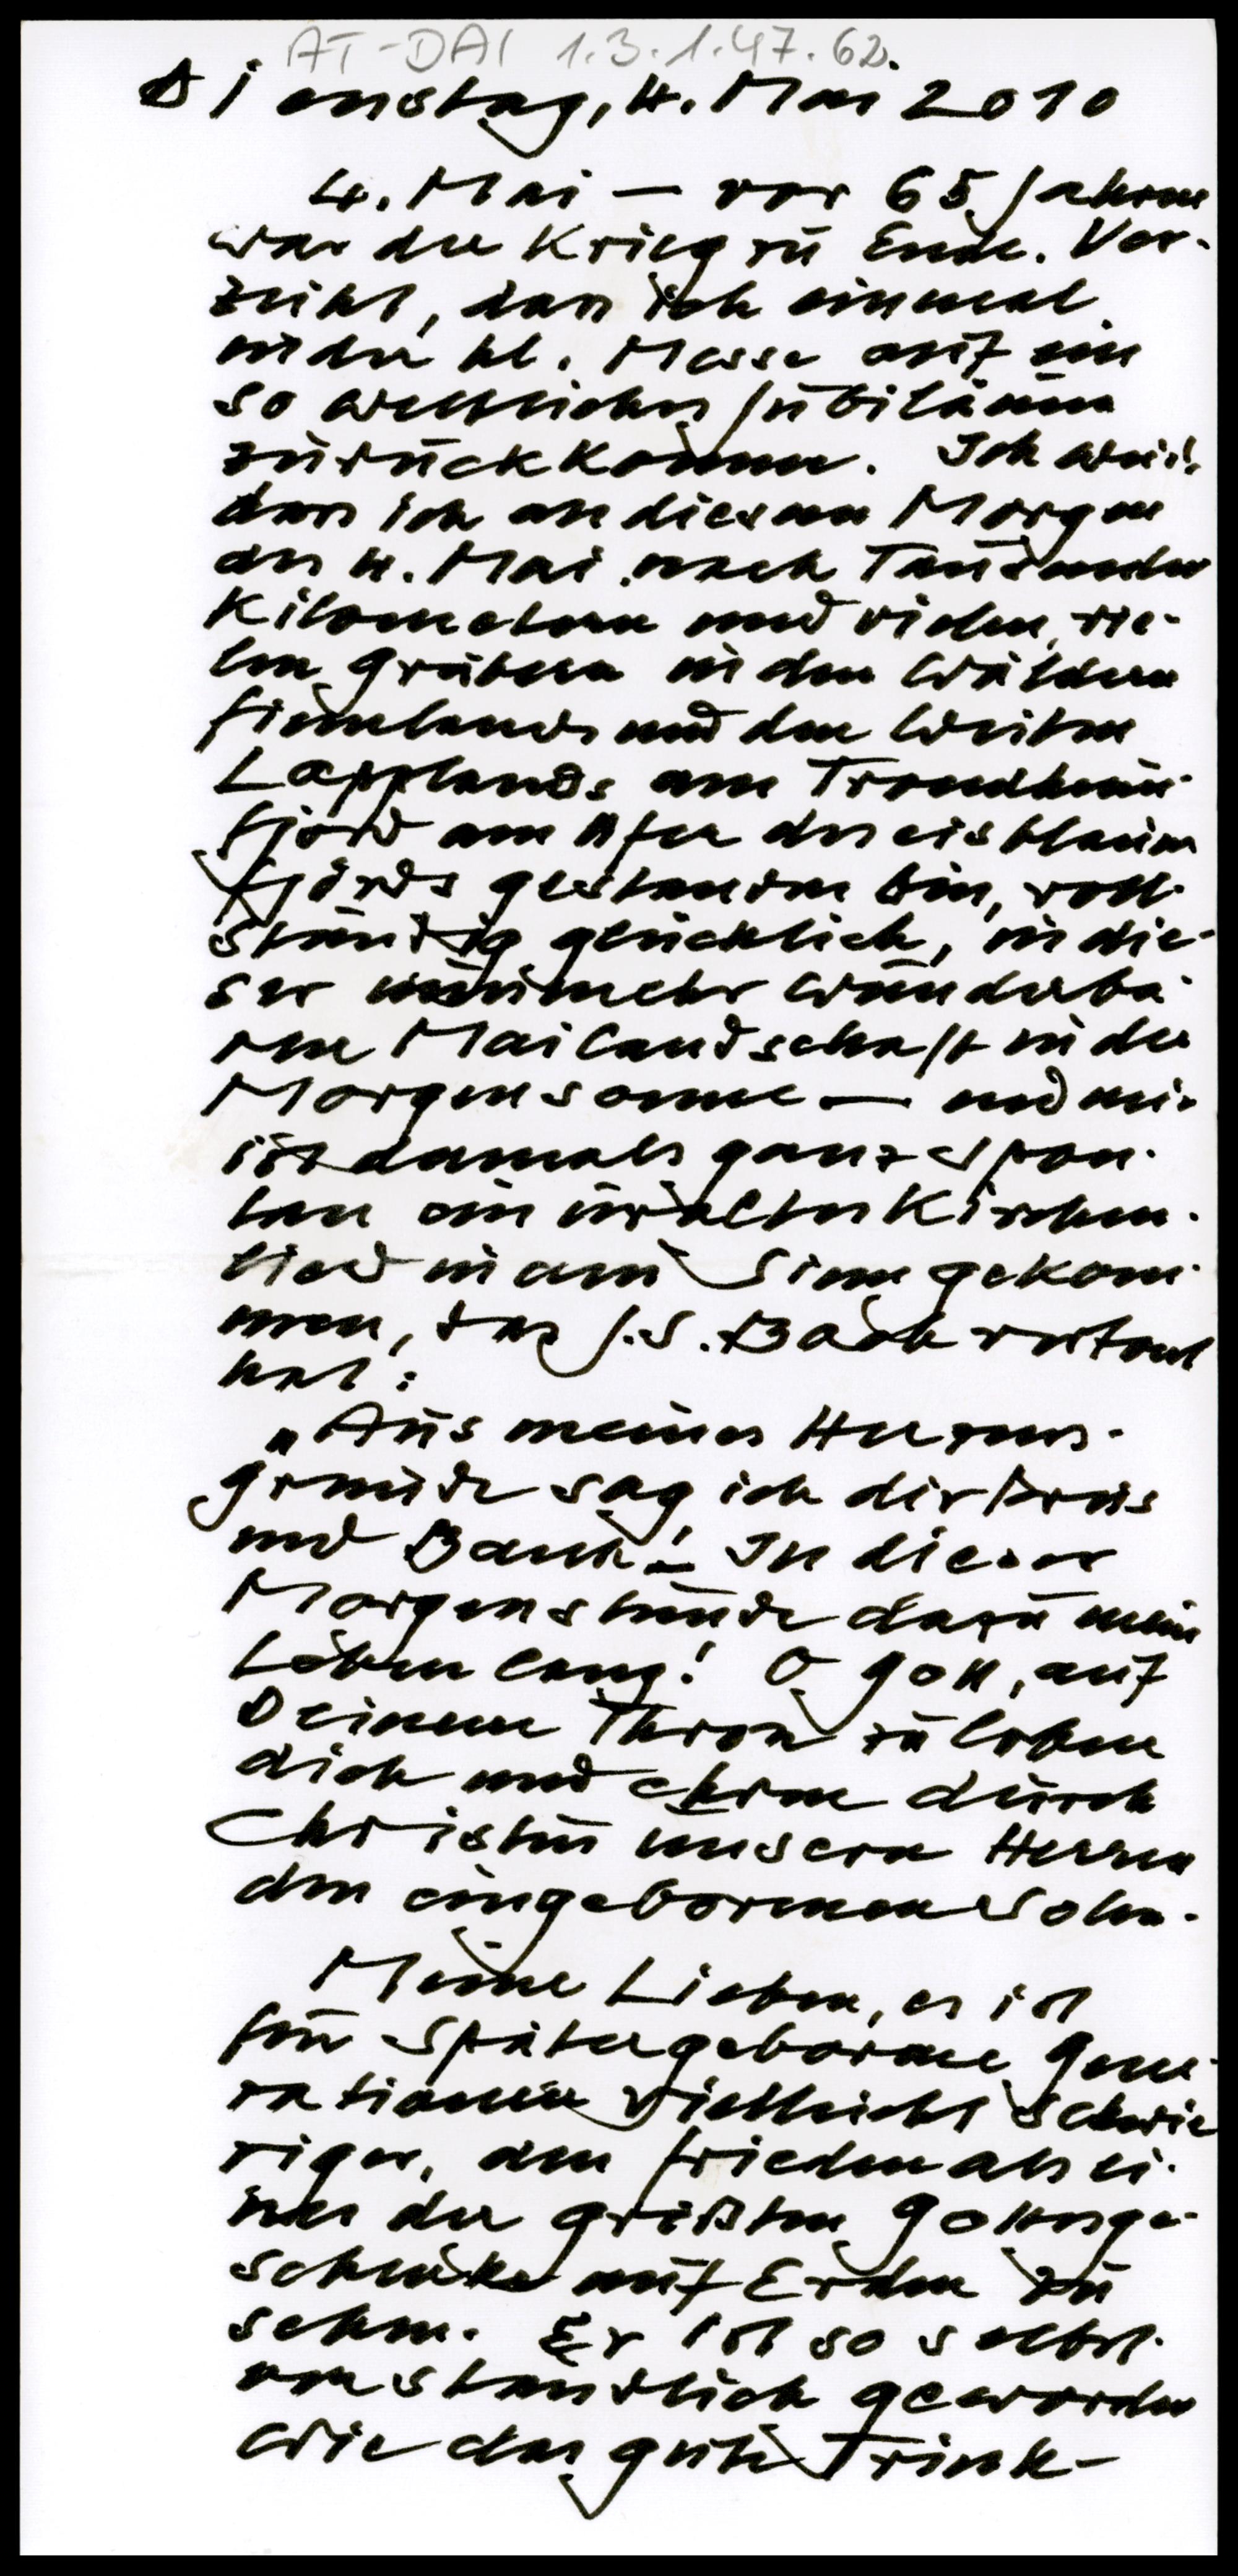 AT-DAI 1.3.1.47.62.
Dienstag, 4. Mai 2010
4. Mai — vor 65 Jahren
war der Krieg zu Ende. Ver-
zeiht, dass ich einmal
in der hl. Messe auf ein
so weltliches Jubiläum
zurückkomme. Ich weiß,
dass ich an diesem Morgen
des 4. Mai nach Tausenden
Kilometern und vielen, vie-
len Gräbern in den Wäldern
Finnlands und den Weiten
Lapplands am Trondheim-
fjord am Ufer des eisblauen
Fjords gestanden bin, voll-
ständig glücklich, in die-
ser nunmehr wunderba-
ren Mailandschaft in der
Morgensonne — und mir
ist damals ganz spon-
tan ein uraltes Kirchen-
lied in den Sinn gekom-
men, das J.S. Bach vertont
hat:
„Aus meines Herzens-
grunde sag ich dir Preis
und Dank! In dieser
Morgenstunde dazu mein
Leben lang! O Gott, auf
Deinem Thron zu loben
dich und ehren durch
Christus unsern Herren
den eingebornen Sohn.
Meine Lieben, es ist
für spätergeborene Gene-
rationen vielleicht schwie-
riger, den Frieden als ei-
nes der größten Gottesge-
schenke auf Erden zu
sehen. Er ist so selbst-
verständlich geworden
wie das gute Trink-